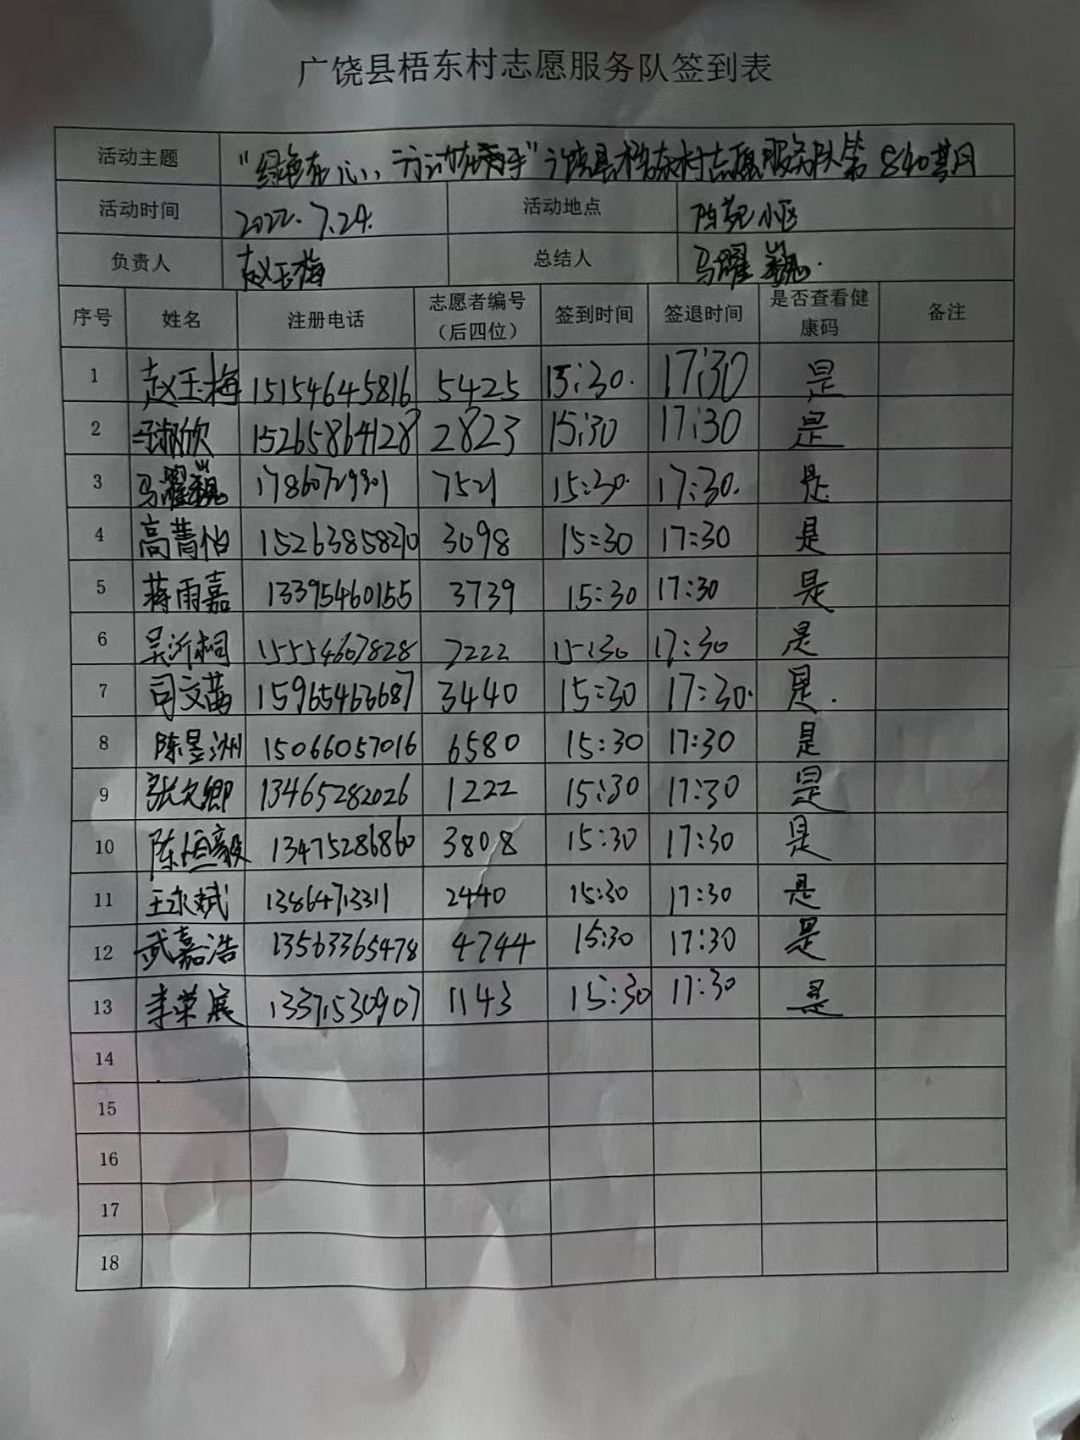 广饶县梧东村志愿服务队签到表
活动主题 “绿色在心,行动在两手”广饶县梧东村志愿服务队第840期
活动时间 2022.7.24. 活动地点 小区
负责人 赵玉梅 总结人 马曜巍.
序号 姓名 注册电话 志愿者编号（后四位） 签到时间 签退时间 是否查看健康码 备注
1 赵玉梅 15154645816 5425 15:30. 17:30 是
2 15265864128 2823 15:30 17:30 是
3 马曜巍 17860729901 7521 15:30. 17:30. 是
4 高菁怡 15263858270 3098 15:30 17:30 是
5 蒋雨嘉 13395460155 3739 15:30 17:30 是
6 吴沂桐 15554667828 7222 15:30 17:30 是
7 司文茜 15965463687 3440 15:30 17:30. 是.
8 陈昱洲 15066057016 6580 15:30 17:30 是
9 张文卿 13465282026 1222 15:30 17:30 是
10 陈恒毅 13475286860 3808 15:30 17:30 是
11 王永斌 13864713311 2440 15:30 17:30 是
12 武嘉浩 13563365478 4744 15:30 17:30 是
13 李荣展 13371530907 1143 15:30 17:30 是
14
15
16
17
18